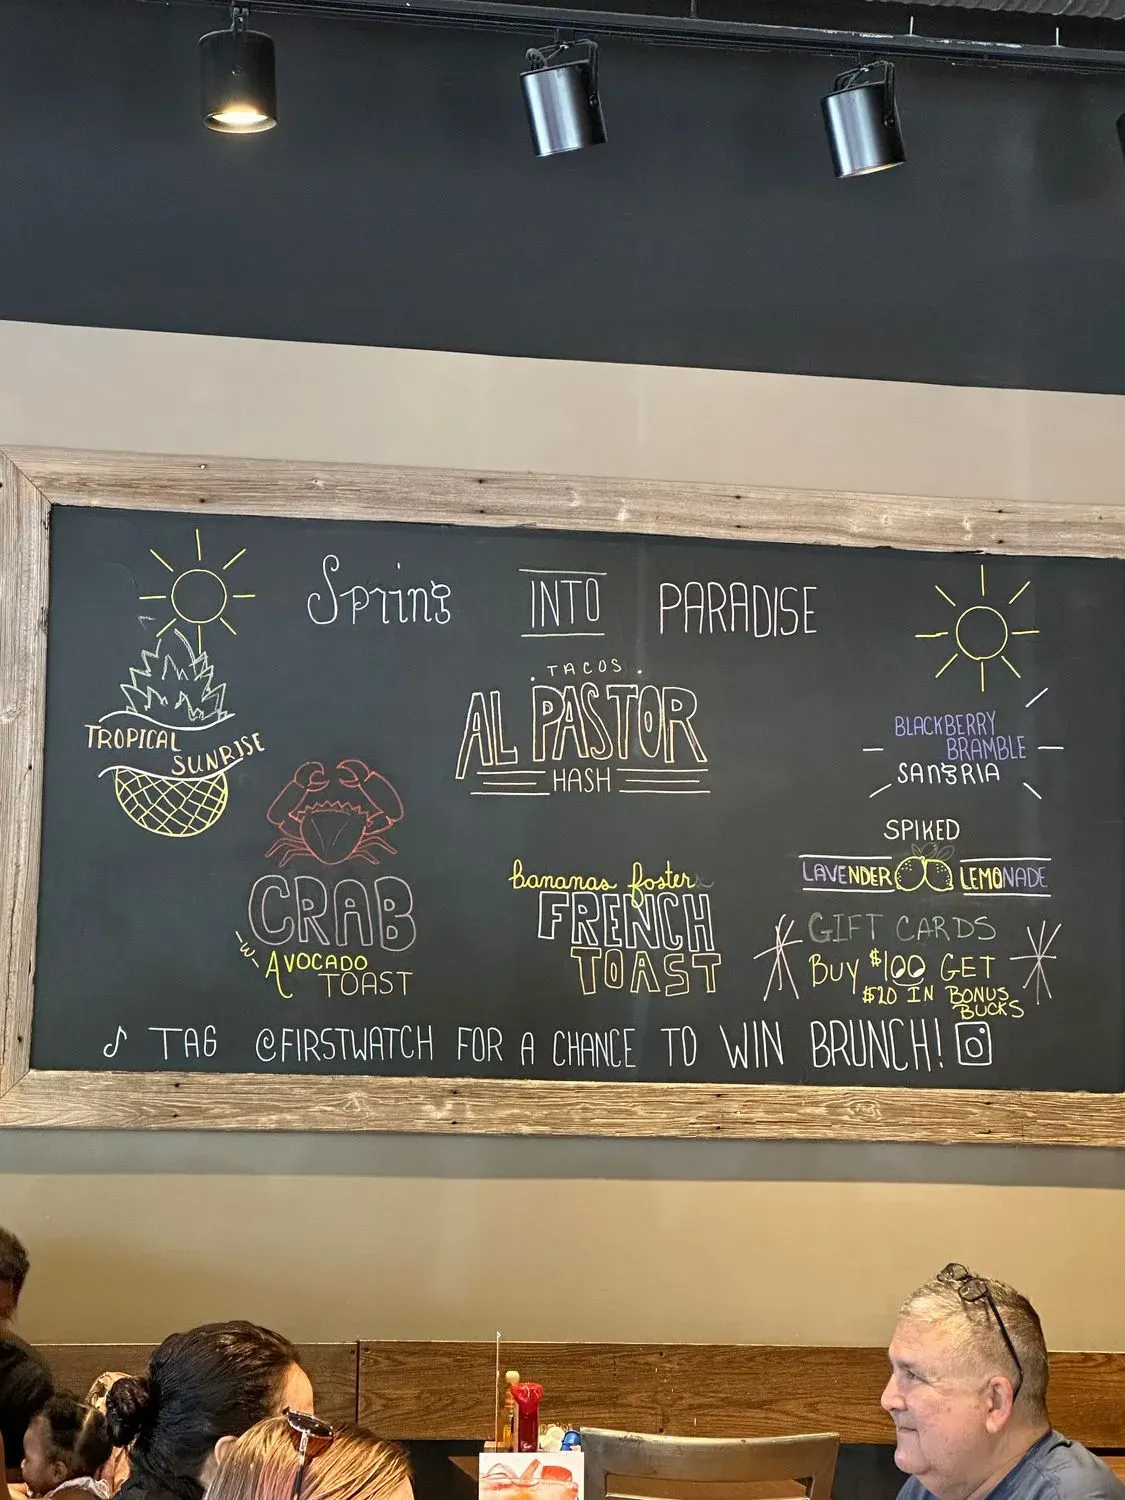 Spring INTO PARADISE
TROPICAL
SUNRISE
TACOS
AL PASTOR
HASH
BLACKBERRY
BRAMBLE
SANGRIA
SPIKED
LAVENDER LEMONADE
CRAB
AVOCADO
TOAST
bananas foster
FRENCH
TOAST
GIFT CARDS
BUY $100 GET
$20 IN BONUS
BUCKS
♪ TAG @FIRSTWATCH FOR A CHANCE TO WIN BRUNCH!